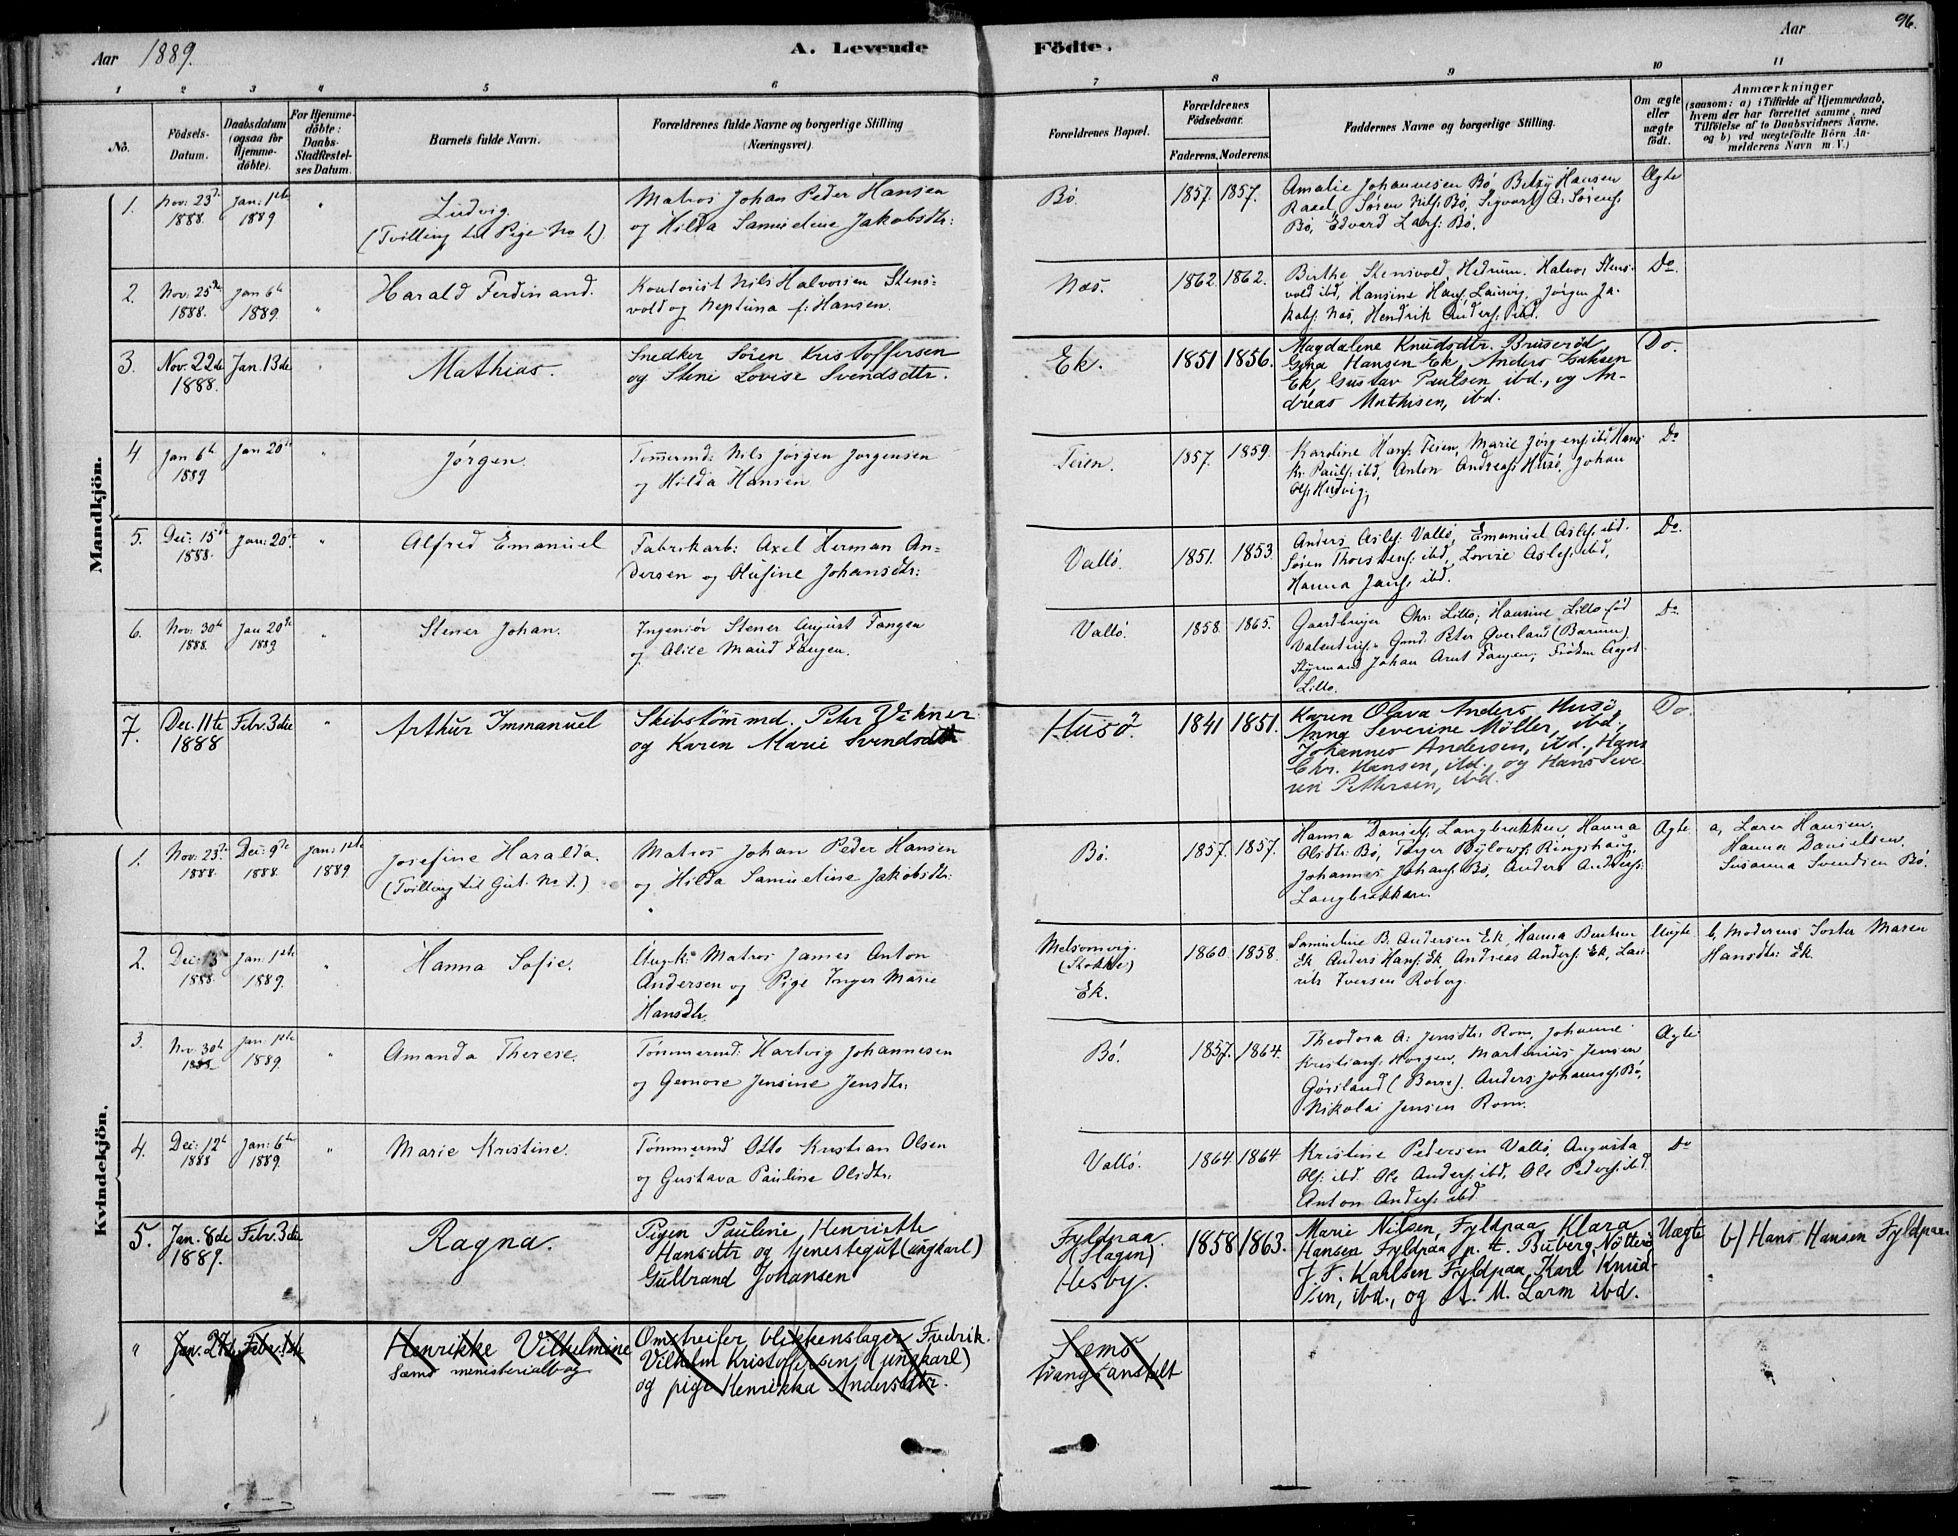 Aar 1889. A. Levende Födte. Aar 96.
1 2 3 4 5 6 7 8 9 10 11
No. Födsels-Datum. Daabsdatum (ogsaa for Hjemmedöbte). For Hjemmedöbte: Daabs-Stadfæstelses Datum. Barnets fulde Navn. Forældrenes fulde Navne og borgerlige Stilling (Næringsvei). Forældrenes Bopæl. Forældrenes Födselsaar. Faderens. Moderens. Faddernes Navne og borgerlige Stilling. Om ægte eller uægte födt. Anmærkninger (saasom: a) i Tilfælde af Hjemmedaab, hvem der har forrettet samme, med Tilföielse af to Daabsvidners Navne, og b) ved uægtefödte Börn Anmelderens Navn m.V.)
Mandkjön.
1. Nov: 23de 1888. Jan: 1ste 1889 " Ludvig. (Tvilling til Pige No 1.)
Matros Johan Peder Hansen
og Hilda Samueline Jakobsdtr:
Bö. 1857. 1857.
Amalie Johannesen Bö, Betzy Hansen
Rasel, Sören Nils: Bö, Sigvart A: Sörens:
Bö, Edvard Lars: Bö.
Ægte
2. Nov. 25de 1888. Jan 6te 1889. " Harald Ferdinand.
Kontorist Nils Halvorsen Stens=
vold og Neptuna f: Hansen.
Næs. 1862. 1862.
Birthe Stensvold, Hedrum. Halvor Stens-
vold ibd, Hansine Hans: Laurvig, Jörgen Ja-
kobs: Næs, Hendrik Anders: ibd.
Do.
3. Nov. 22de 1888. Jan. 13de Mathias.
Snedker Sören Kristoffersen
og Steni Lovise Svendsdtr.
Ek. 1851 1856.
Magdalene Knudsdtr. Bruseröd,
Gina Hansen Ek, Anders Isaksen
Ek, Gustav Paulsen ibd., og An-
dreas Mathisen, ibd.
Do.
4. Jan 6te 1889 Jan 20de " Jörgen.
Tömermd: Nils Jörgen Jörgensen
og Hilda Hansen
Teien. 1857. 1859.
Karoline Hans: Teien, Marie Jörgens: ibd, Hans
Kr. Pauls: ibd, Anton Andreas: Husö, Johan
Ols:
Do
5. Dec: 15de 1888. Jan: 20de " Alfred Emanuel
Fabrikarb: Axel Herman An=
dersen og Olufine Johansdtr:
Vallö. 1851. 1853.
Anders Asles: Vallö, Emanuel Asles: ibd.
Sören Thorstens: ibd, Lovise Asles: ibd,
Hanna Jans: ibd.
Do.
6. Nov: 30te 1888. Jan 20de 1889 " Stener Johan.
Ingeniör Stener August Fangen
og Alice Maud Fangen.
Vallö. 1858. 1865.
Gaardbruger Chr: Lillo; Hansine Lillo föd
Valentins: Peter Overland (Bærum).
Styrmand Johan Arnt Fangen; Fröken Aagot
Lillo.
Do
7. Dec. 11te 1888 Febr. 3die " Arthur Immanuel
Skibstömmd. Peter
og Karen Marie Svendsdtr
Husö. 1841 1851.
Karen Olava Anders Husö,
Anna Severine Möller, ibd.
Johannes Andersen, ibd., Hans
Chr. Hansen, ibd., og Hans Seve-
rin Pettersen, ibd.
Do.
Kvindekjön.
1. Nov: 23de 1888. Dec: 9de 1888. Jan: 1ste 1889. Josefine Haralda. (Tvilling til Gut. No 1.)
Matros Johan Peder Hansen
og Hilda Samueline Jakobsdtr:
Bö. 1857. 1857.
Hanna Daniels: Langbrækken, Hanna
Olsdtr: Bö, Bylows: Ringshaug,
Johannes Johans: Bö, Anders Andreas:
Langbrækken.
Ægte
a, Laren Hansen.
Hanna Danielsen,
Susanna Svendsen Bö.
2. Dec: 1888. Jan: 1ste 1889. " Hanna Sofie.
Ungk: Matros James Anton
Andersen og Pige Inger Marie
Hansdtr.
Melsomvig. (Stokke) Ek. 1860. 1858.
Samueline B. Andersen Ek, Hanna
Ek Anders Hans: Ek, Andreas Anders: Ek, Lau-
rits Iversen Roberg.
Uægte
b, Moderens Söster Maren
Hansdtr: Ek.
3. Nov. 30te 1888. Jan. 1ste 1889. " Amanda Therese.
Tömmermd: Hartvig Johannesen
og Gemore Jensine Jensdtr:
Bö. 1857. 1864.
Theodora A: Jensdtr: Rom, Johanne
Kristians: Horgen, Martinius Jensen
Görsland (Borre), Anders Johannes: Bö,
Nikolai Jensen Rom.
Ægte
4. Dec: 12te 1888 Jan: 6te 1889. " Marie Kristine.
Tömmermd Otto Kristian Olsen
og Gustava Pauline Olsdtr:
Vallö. 1864. 1864.
Kristine Pedersen Vallö, Augusta
Ols: ibd. Ole Anders: ibd, Ole Peders: ibd.
Anton Anders: ibd
Do
5. Jan. 8de 1889. Febr. 3die Ragna.
Pigen Pauline Henriette
Hansdtr og tjenestegut (ungkarl)
Gulbrand Johansen
Fyldpaa. (Slagen) Hesby. 1858 1863.
Marie Nilsen, Fyldpaa, Klara
Hansen Fyldpaa p. t. Buberg, Nötterö
J. F. Karlsen Fyldpaa, Karl Knud-
sen, ibd., og A. M. Larm ibd.
Uægte
b) Hans Hansen Fyldpaa
" Jan. 27de Febr. 1ste Henrikke Vilhelmine
Sæms ministerialbog
Omstreifer, blikkenslager Fredrik
Vilhelm Kristoffersen (ungkarl)
og pige Henrikka Andersdtr.
Sæms tvangsanstalt